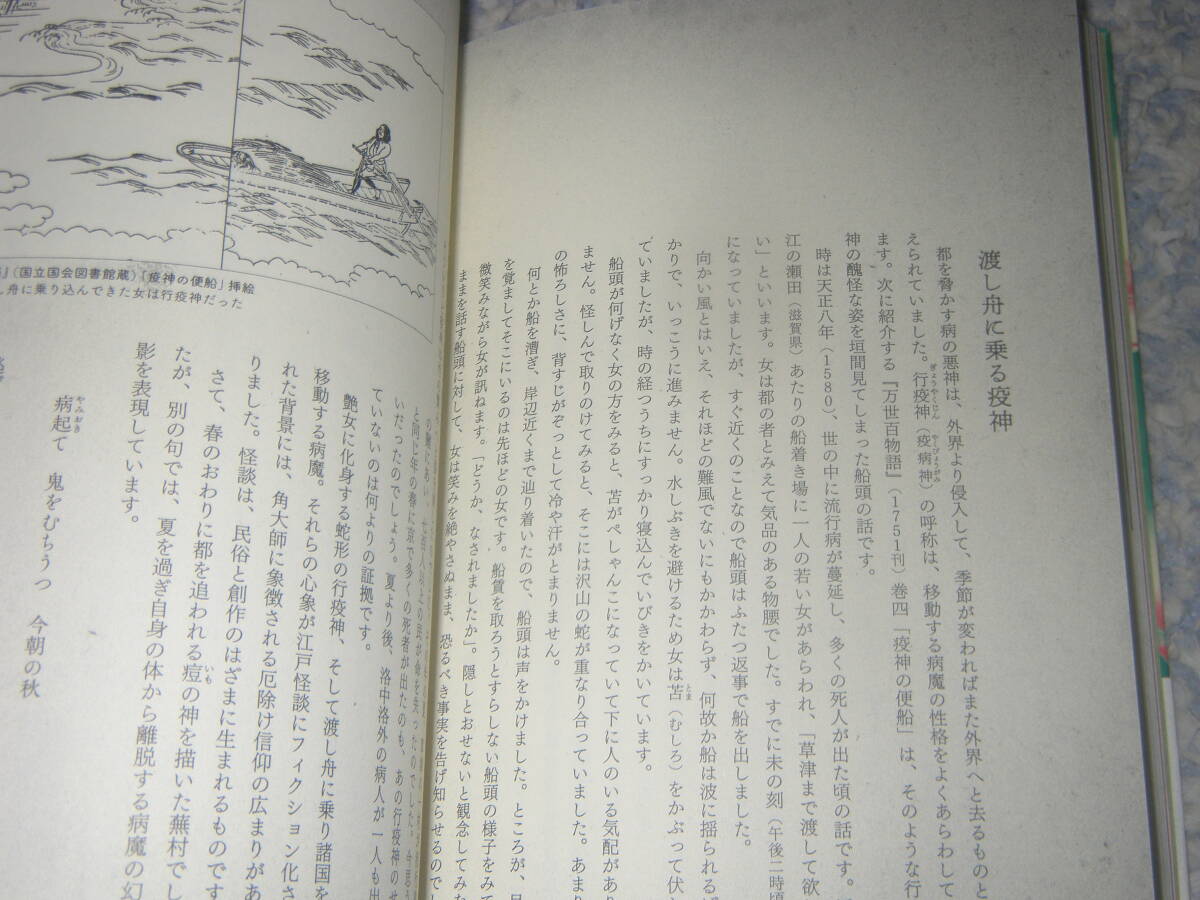 渡し舟に乗る疫神
都を脅かす病の悪神は、外界より侵入して、季節が変わればまた外界へと去るものと
えられていました。行疫神（疫病神）の呼称は、移動する病魔の性格をよくあらわして
ぎょうやくじん
やくびょうがみ
ます。次に紹介する『万世百物語』（1751刊）巻四「疫神の便船」は、そのような行
神の醜怪な姿を垣間見てしまった船頭の話です。
時は天正八年（1580）、世の中に流行病が蔓延し、多くの死人が出た頃の話です。
江の瀬田（滋賀県）あたりの船着き場に一人の若い女があらわれ、「草津まで渡して欲
い」といいます。女は都の者とみえて気品のある物腰でした。すでに未の刻（午後二時頃
になっていましたが、すぐ近くのことなので船頭はふたつ返事で船を出しました。
向かい風とはいえ、それほどの難風でないにもかかわらず、何故か船は波に揺られるば
かりで、いっこうに進みません。水しぶきを避けるため女は苫（むしろ）をかぶって伏し
とま
ていましたが、時の経つうちにすっかり寝込んでいびきをかいています。
船頭が何げなく女の方をみると、苫がぺしゃんこになっていて下に人のいる気配があり
ません。怪しんで取りのけてみると、そこには沢山の蛇が重なり合っていました。あまり
の怖ろしさに、背すじがぞっとして冷や汗がとまりません。
何とか船を漕ぎ、岸辺近くまで辿り着いたので、船頭は声をかけました。ところが、目
を覚ましてそこにいるのは先ほどの女です。船賃を取ろうとすらしない船頭の様子をみて
微笑みながら女が訊ねます。「どうか、なされましたか」。隠しとおせないと観念してみた
ままを話す船頭に対して、女は笑みを絶やさぬまま、恐るべき事実を告げ知らせるのでし
』（国立国会図書館蔵）「疫神の便船」挿絵
し舟に乗り込んできた女は行疫神だった
と同じ年の春に京で多くの死者が出たのも、あの行疫神のせ
いだったのでしょう。夏より後、洛中洛外の病人が一人も出
ていないのは何よりの証拠です。
艶女に化身する蛇形の行疫神、そして渡し舟に乗り諸国を
移動する病魔。それらの心象が江戸怪談にフィクション化さ
れた背景には、角大師に象徴される厄除け信仰の広まりがあ
りました。怪談は、民俗と創作のはざまに生まれるものです
さて、春のおわりに都を追われる痘の神を描いた蕪村でし
いも
たが、別の句では、夏を過ぎ自身の体から離脱する病魔の幻
影を表現しています。
病起て　鬼をむちうつ　今朝の秋
やみおき